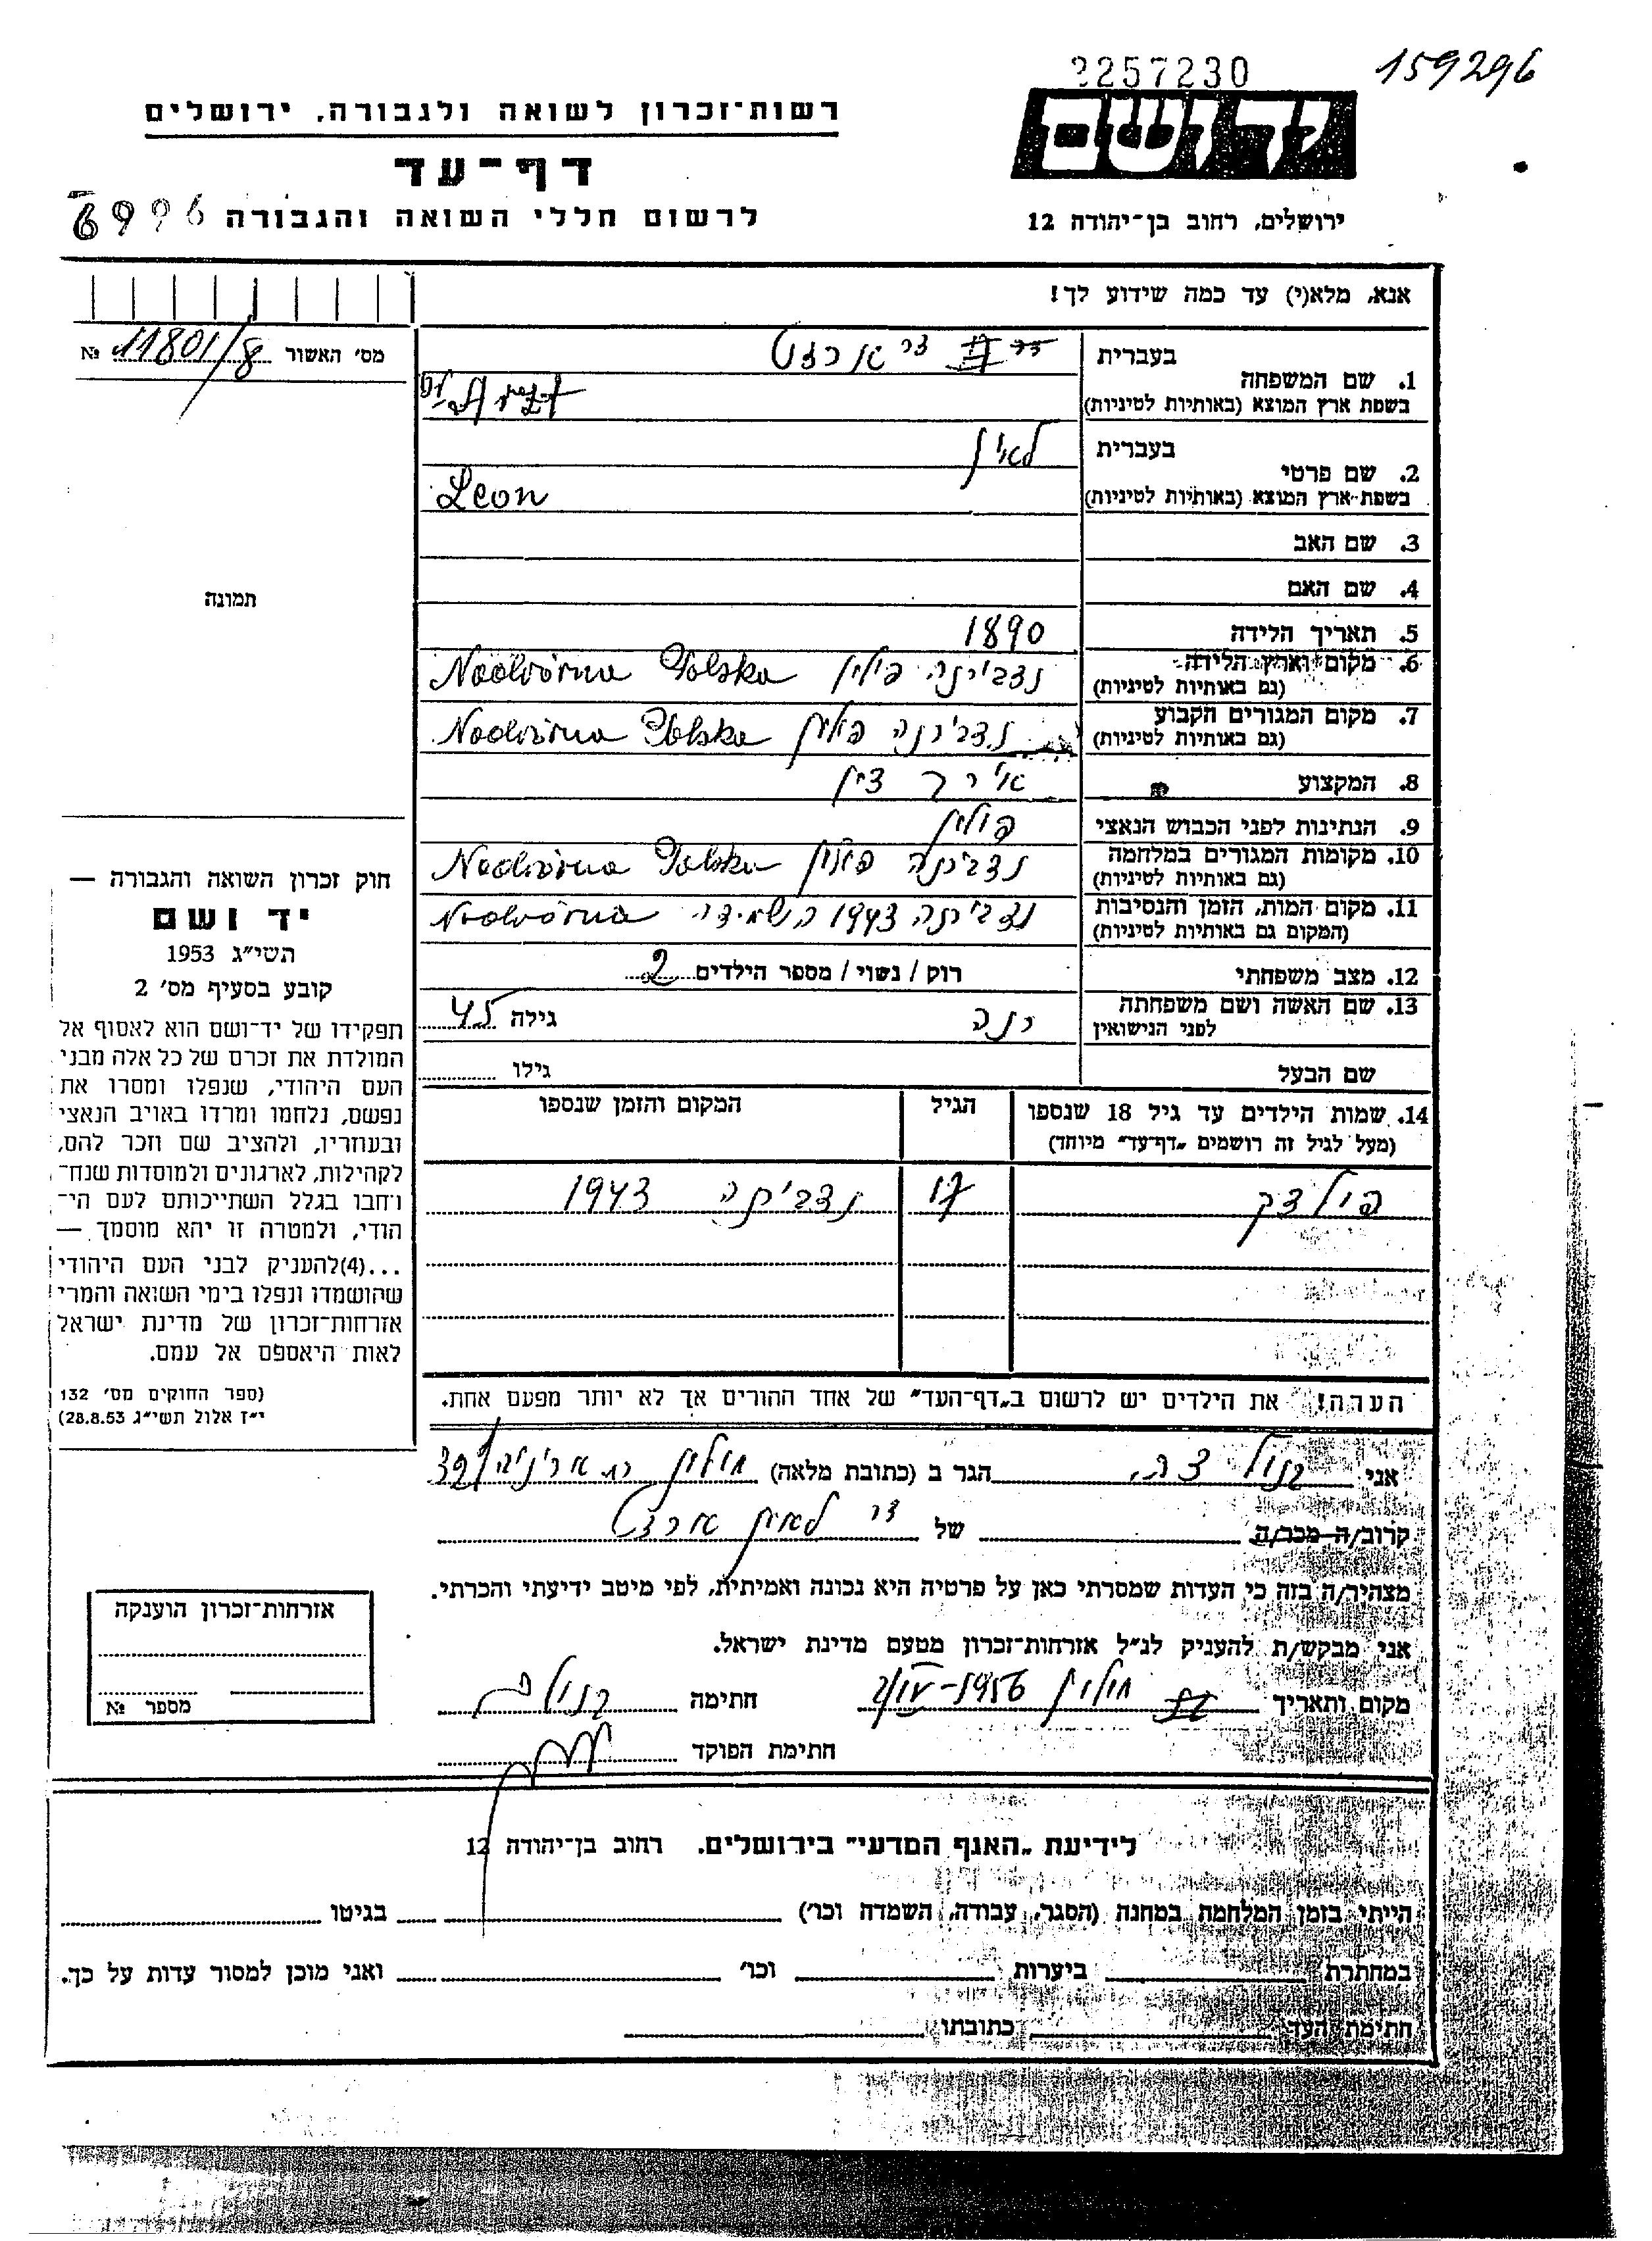 2257230
159296
רשות־זכרון לשואה ולגבורה, ירושלים
דף־עד
לרשום חללי השואה והגבורה 6996
ידושם
ירושלים, רחוב בן־יהודה 12
אנא, מלא(י) עד כמה שידוע לך!
מס׳ האשור 11801/8 №
1. שם המשפחה
בעברית דר ארצט
בשפת ארץ המוצא (באותיות לטיניות) Dr. Arzt
2. שם פרטי
בעברית לאון
בשפת־ארץ המוצא (באותיות לטיניות) Leon
3. שם האב
4. שם האם
5. תאריך הלידה 1890
6. מקום וארץ הלידה נדבורנה פולין Nadwórna Polska
(גם באותיות לטיניות)
7. מקום המגורים הקבוע נדבורנה פולין Nadwórna Polska
(גם באותיות לטיניות)
8. המקצוע עורך דין
9. הנתינות לפני הכבוש הנאצי פולין
10. מקומות המגורים במלחמה נדבורנה פולין Nadwórna Polska
(גם באותיות לטיניות)
11. מקום המות, הזמן והנסיבות נדבורנה 1943 השמידה Nadwórna
(המקום גם באותיות לטיניות)
12. מצב משפחתי רוק / נשוי / מספר הילדים 2
13. שם האשה ושם משפחתה רנה גילה 45
לפני הנישואין
שם הבעל גילו
14. שמות הילדים עד גיל 18 שנספו הגיל המקום והזמן שנספו
(מעל לגיל זה רושמים „דף־עד״ מיוחד)
פולדק 17 נדבורנה 1943
הערה! את הילדים יש לרשום ב„דף־העד״ של אחד ההורים אך לא יותר מפעם אחת.
תמונה
חוק זכרון השואה והגבורה —
יד ושם
תשי״ג 1953
קובע בסעיף מס׳ 2
תפקידו של יד־ושם הוא לאסוף אל
המולדת את זכרם של כל אלה מבני
העם היהודי, שנפלו ומסרו את
נפשם, נלחמו ומרדו באויב הנאצי
ובעוזריו, ולהציב שם וזכר להם,
לקהילות, לארגונים ולמוסדות שנח־
רבו בגלל השתייכותם לעם הי־
הודי, ולמטרה זו יהא מוסמך —
...(4)להעניק לבני העם היהודי
שהושמדו ונפלו בימי השואה והמרי
אזרחות־זכרון של מדינת ישראל
לאות היאספם אל עמם.
(ספר החוקים מס׳ 132
י״ז אלול תשי״ג 28.8.53)
אני הגר ב (כתובת מלאה) חולון
קרוב/ה מכר/ה של דר לאון ארצט
מצהיר/ה בזה כי העדות שמסרתי כאן על פרטיה היא נכונה ואמיתית, לפי מיטב ידיעתי והכרתי.
אני מבקש/ת להעניק לנ״ל אזרחות־זכרון מטעם מדינת ישראל.
מקום ותאריך חולון 1956 חתימה
חתימת הפוקד
אזרחות־זכרון הוענקה
מספר №
לידיעת „האגף המדעי״ בירושלים. רחוב בן־יהודה 12
הייתי בזמן המלחמה במחנה (הסגר, עבודה, השמדה וכו׳) בגיטו
במחתרת ביערות וכו׳ ואני מוכן למסור עדות על כך.
חתימת העד כתובתו